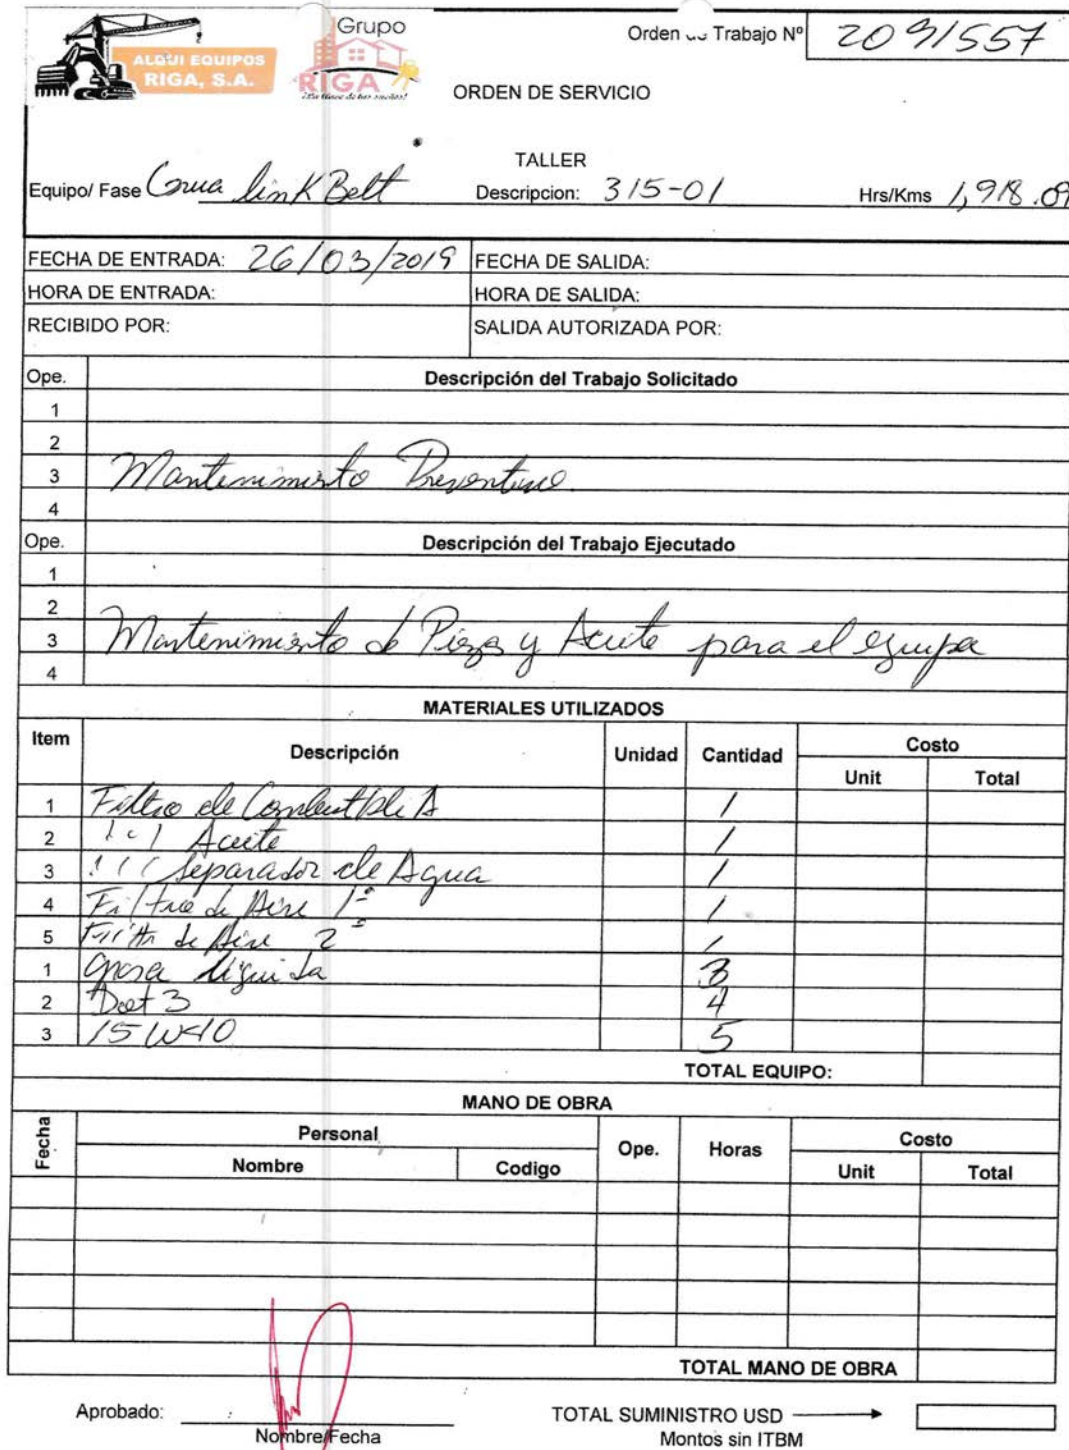 Grupo
ALQUI EQUIPOS
RIGA, S.A.
RIGA
Orden de Trabajo Nº 2091557
ORDEN DE SERVICIO
TALLER
Equipo/ Fase Grua link Belt Descripcion: 315-01 Hrs/Kms 1,918.09
FECHA DE ENTRADA: 26/03/2019 FECHA DE SALIDA:
HORA DE ENTRADA: HORA DE SALIDA:
RECIBIDO POR: SALIDA AUTORIZADA POR:
Ope. Descripción del Trabajo Solicitado
1
2
3 Mantenimiento Preventivo
4
Ope. Descripción del Trabajo Ejecutado
1
2
3 Mantenimiento de Piezas y Aceite para el equipo
4
MATERIALES UTILIZADOS
Item Descripción Unidad Cantidad Costo
Unit Total
1 Filtro de Combustible 1
2 Aceite 1
3 Separador de Agua 1
4 Filtro de Aire 1º 1
5 Filtro de Aire 2º 1
1 Grasa liquida 3
2 Dot 3 4
3 15W40 5
TOTAL EQUIPO:
MANO DE OBRA
Fecha Personal Ope. Horas Costo
Nombre Codigo Unit Total
TOTAL MANO DE OBRA
Aprobado: TOTAL SUMINISTRO USD
Nombre/Fecha Montos sin ITBM